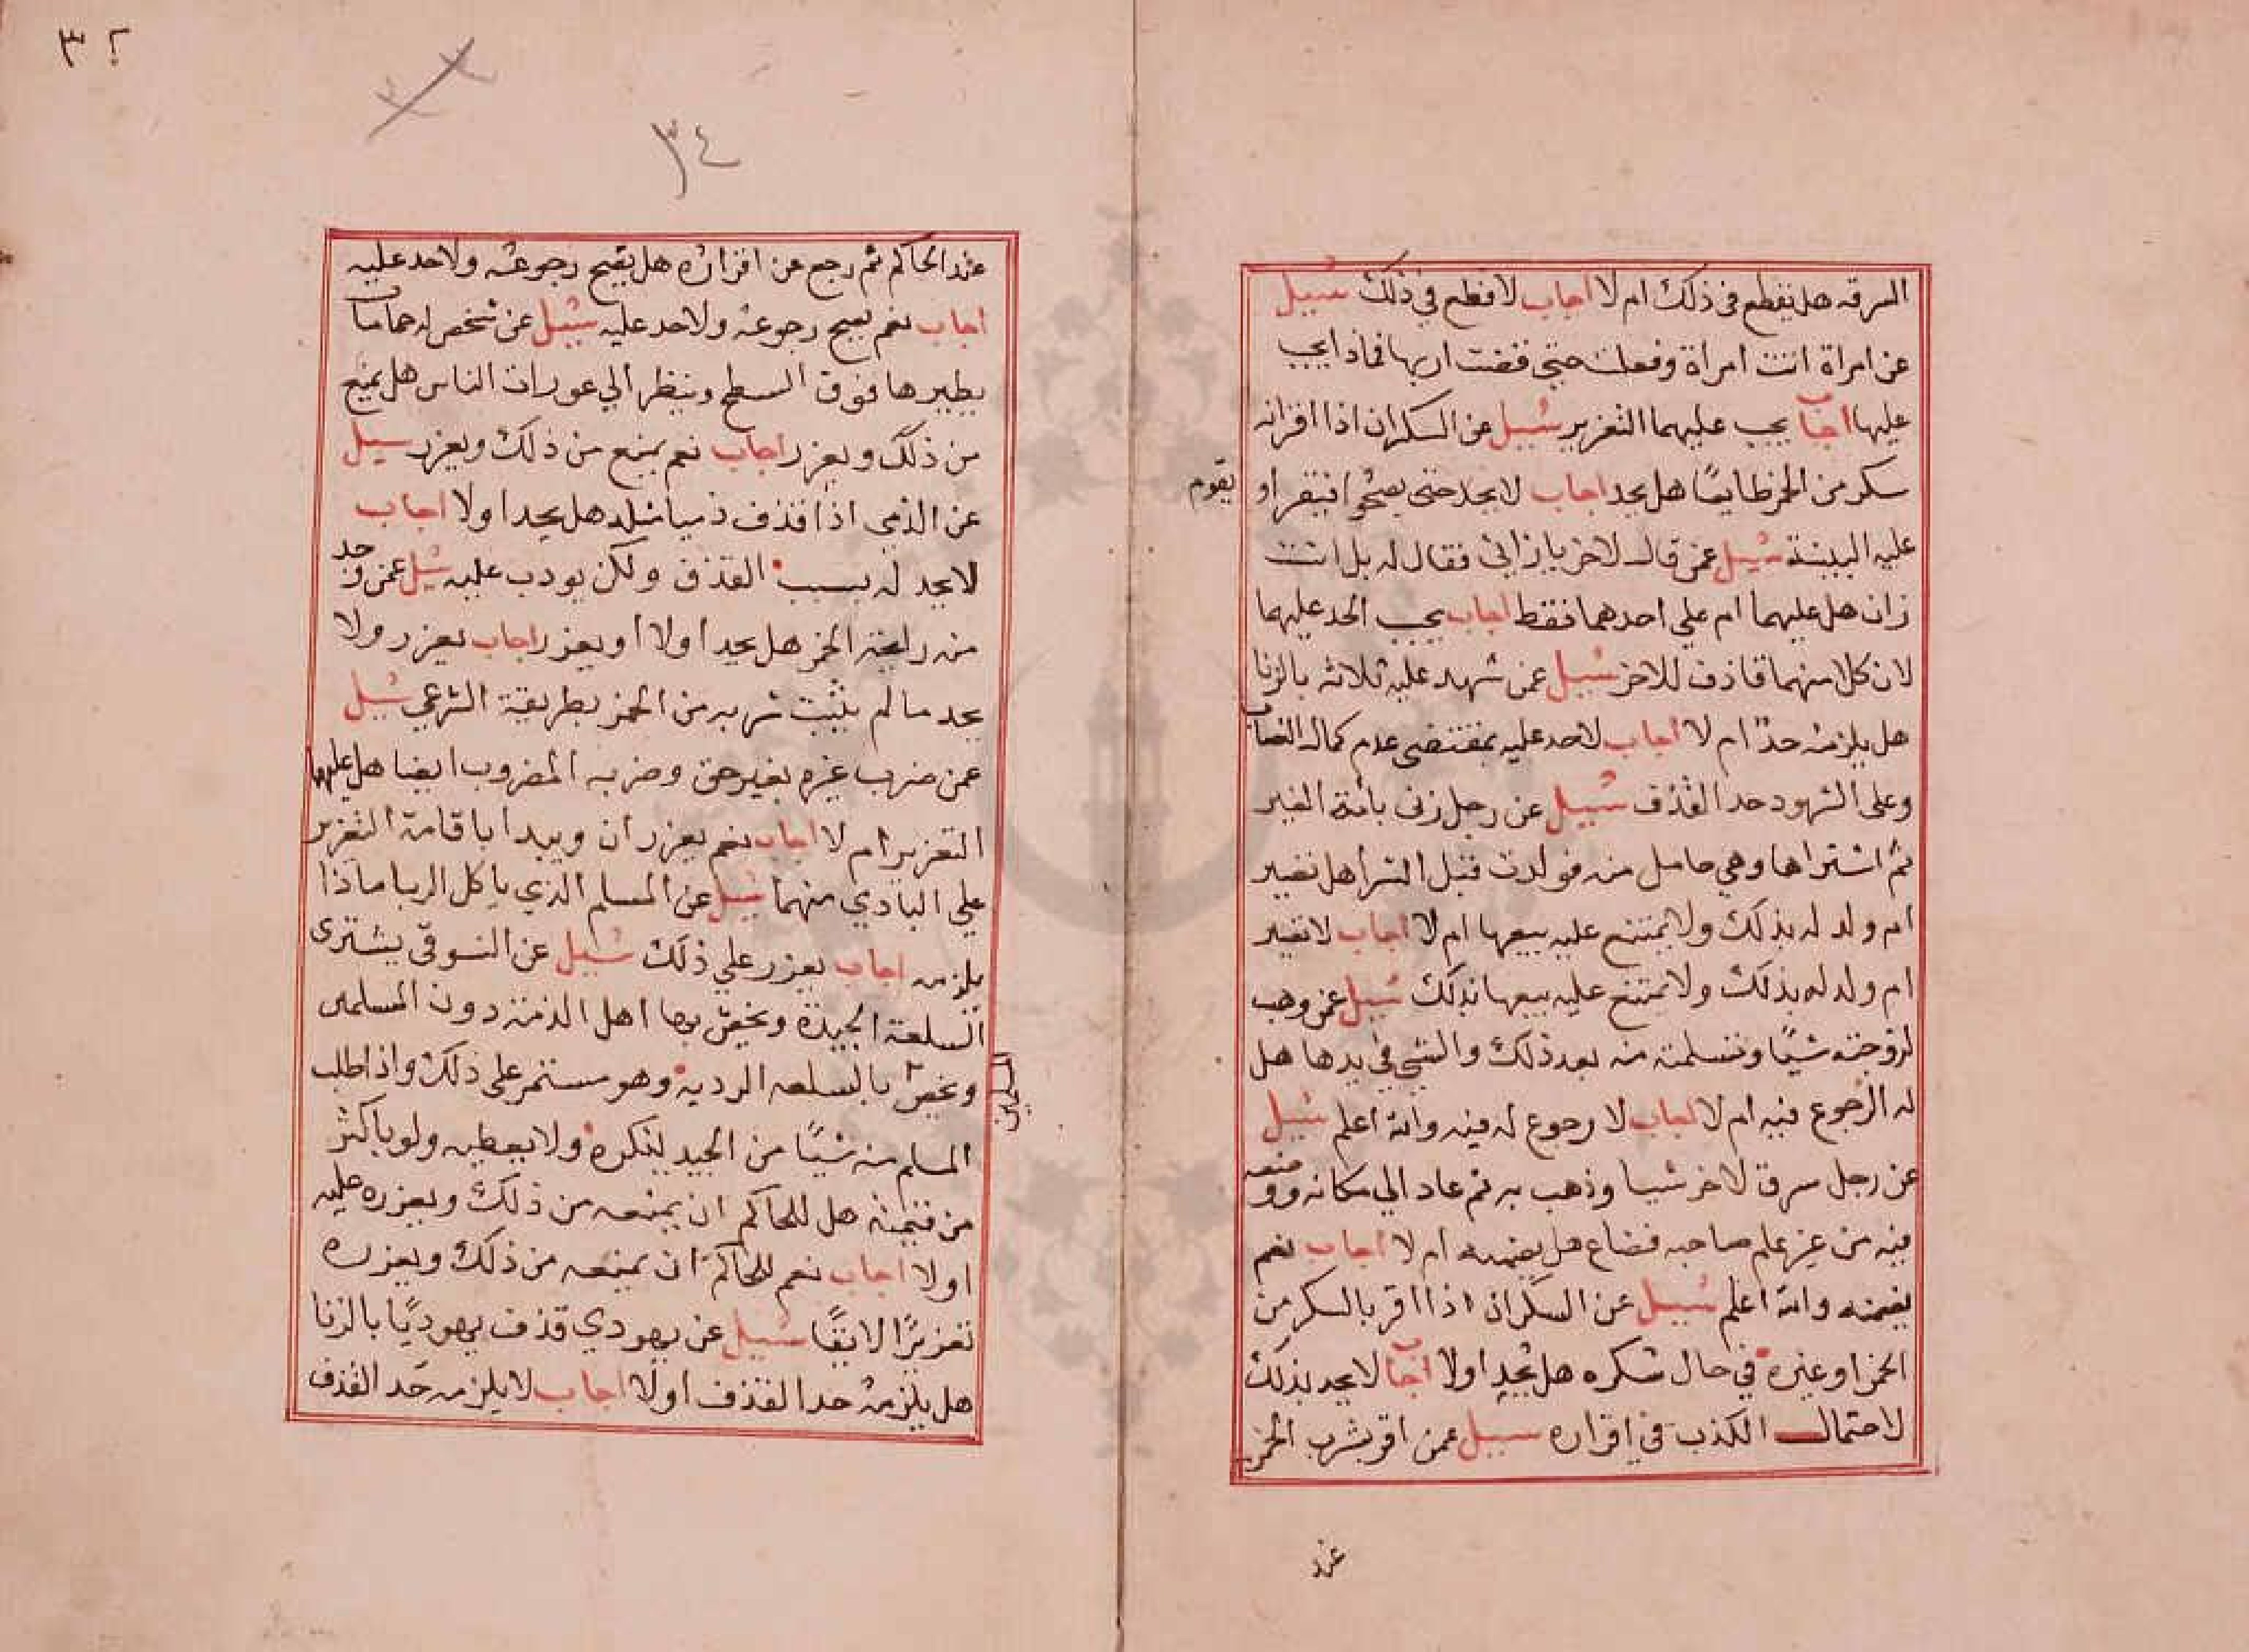 السرقه هل يقطع في ذلك ام لا اجاب لا قطع في ذلك سيل
عن امراة اتت امراة وفعلت حتى قضت اربها فماذا يجب
عليها اجاب يجب عليهما التعزير سيل عن السكران اذا اقر انه
سكر من الخمر طايعًا هل يحد اجاب لا يحد حتى يصحو فيقر او
يقوم
عليه البينة سيل عمن قال لاخر يا زاني فقال له بل انت
زان هل عليهما ام على احدهما فقط اجاب يجب الحد عليهما
لان كلا منهما قاذف للاخر سيل عمن شهد عليه ثلاثه بالزنا
هل يلزمه حدّ ام لا اجاب لا حد عليه بمقتضى عدم كمال النصاب
وعلى الشهود حد القذف سيل عن رجل زنى بأمة الغير
ثم اشتراها وهي حامل منه فولدت قبل الشرا هل تصير
ام ولد له بذلك ولا يمتنع عليه بيعها ام لا اجاب لا تصير
ام ولد له بذلك ولا يمتنع عليه بيعها بذلك سيل عمن وهب
لزوجته شيًا وتسلمته منه بعد ذلك والشي في يدها هل
له الرجوع فيه ام لا اجاب لا رجوع له فيه والله اعلم سيل
عن رجل سرق لاخر شيا وذهب به ثم عاد الي مكانه ووضعه
فيه من غير علم صاحبه فضاع هل يضمنه ام لا اجاب نعم
يضمنه والله اعلم سيل عن السكران اذا اقر بالسكر من
الخمر او غيره في حال سكره هل يحد اولا اجاب لا يحد بذلك
لاحتمال الكذب في اقراره سيل عمن اقر بشرب الخمر
عند
٣٢
٣٤
عند الحاكم ثم رجع عن اقراره هل يصح رجوعه ولا حد عليه
اجاب نعم يصح رجوعه ولا حد عليه سيل عن شخص له حماما
يطيرها فوق السطح وينظر الي عورات الناس هل يمنع
من ذلك ويعزر اجاب نعم يمنع من ذلك ويعزر سيل
عن الذمي اذا قذف ذميا مثله هل يحد اولا اجاب
لا يحد له بسبب القذف ولكن يودب عليه سيل عمن وجد
منه رايحة الخمر هل يحد اولا او يعزر اجاب يعزر ولا
يحد ما لم يثبت شربه من الخمر بطريقة الشرعي سيل
عمن ضرب غيره بغير حق وضربه المضروب ايضا هل عليهما
التعزير ام لا اجاب نعم يعزران ويبدا باقامة التعزير
علي البادي منهما سيل عن المسلم الذي ياكل الربا ماذا
يلزمه اجاب يعزر علي ذلك سيل عن السوقي يشتري
السلعة الجيدة ويخص بها اهل الذمة دون المسلمين
ويخص بالسلعه الرديه وهو مستمر على ذلك واذا طلب
المسلمين
المسلم منه شيًا من الجيد ينكره ولا يعطيه ولو باكثر
من قيمته هل للحاكم ان يمنعه من ذلك ويعزره عليه
اولا اجاب نعم للحاكم ان يمنعه من ذلك ويعزره
تعزيرًا لايقًا سيل عن يهودي قذف يهوديًا بالزنا
هل يلزمه حد القذف اولا اجاب لا يلزمه حَد القذف